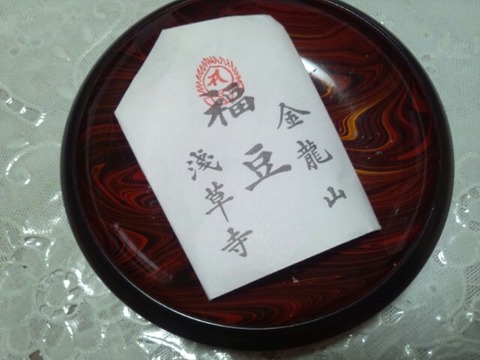 金龍山
福豆
淺草寺